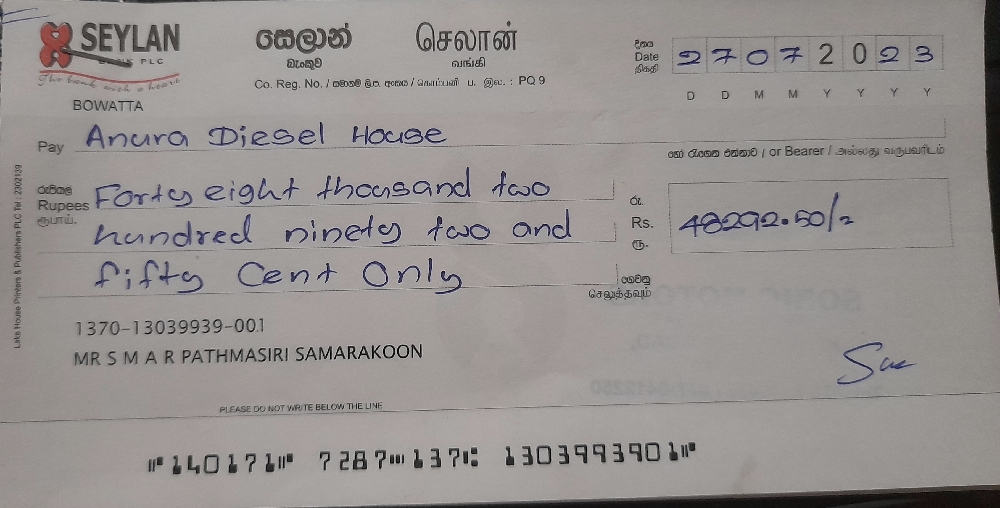 SEYLAN
BANK PLC
The bank with a heart
සෙලාන් බැංකුව
செலான் வங்கி
Co. Reg. No. / සමාගම් ලි.ප. අංකය / கொம்பனி ப. இல. : PQ 9
දිනය
Date 27072023
திகதி D D M M Y Y Y Y
BOWATTA
Pay Anura Diesel House
හෝ රැගෙන එන්නාට / or Bearer / அல்லது வருபவரிடம்
රුපියල්
Rupees Forty eight thousand two
ரூபாய். hundred ninety two and
fifty Cent Only
රු.
Rs. 48292.50/=
ரூ.
ගෙවනු
செலுத்தவும்
1370-13039939-001
MR S M A R PATHMASIRI SAMARAKOON
PLEASE DO NOT WRITE BELOW THE LINE
⑈140171⑈ 7287⑉137⑆ 130399390 1⑈
Lake House Printers & Publishers PLC Tel : 2302139